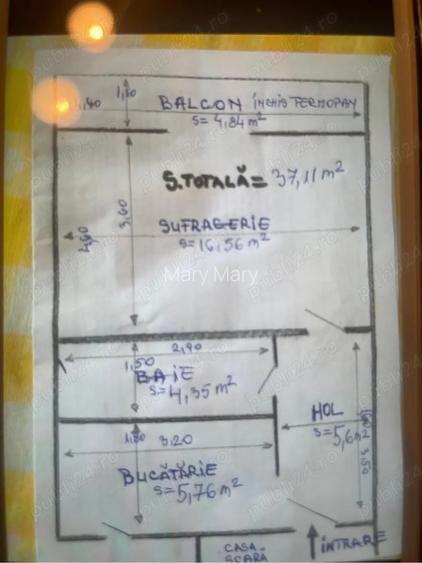 1,10
4,40
BALCON ÎNCHIS TERMOPAN
S= 4,84 m²
S.TOTALĂ = 37,11 m²
3,60
4,60
SUFRAGERIE
S=16,56 m²
Mary Mary
2,90
1,50
BAIE
S= 4,35 m²
HOL
S=5,6 m²
3,50
1,80
3,20
BUCĂTĂRIE
S=5,76 m²
CASA
SCARĂ
INTRARE
publi24.ro